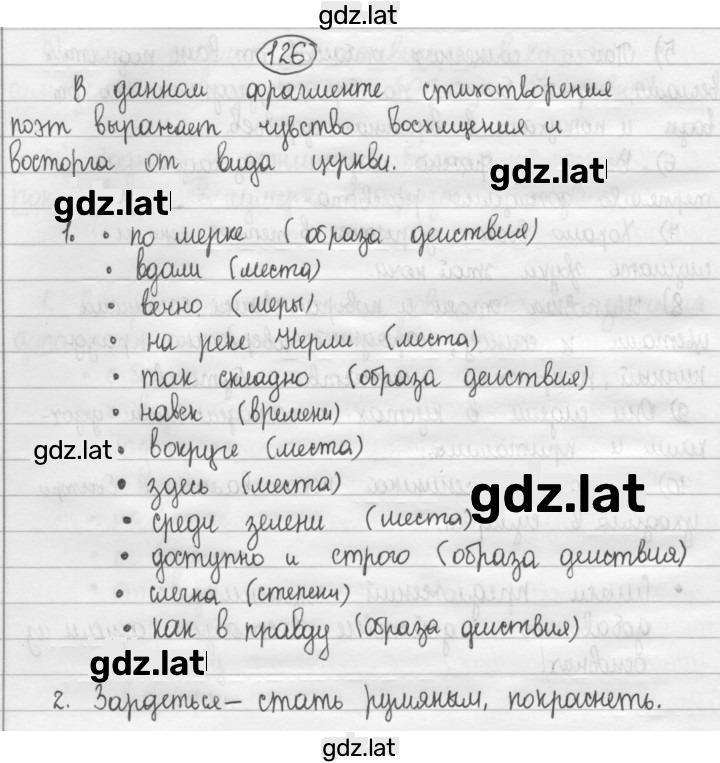 gdz.lat
126
В данном фрагменте стихотворения
поэт выражает чувство восхищения и
восторга от вида церкви.
gdz.lat
gdz.lat
1. • по мерке (образа действия)
• вдали (места)
• вечно (меры)
• на реке Нерли (места)
• так складно (образа действия)
• навек (времени)
gdz.lat
• вокруге (места)
• здесь (места)
gdz.lat
• среди зелени (места)
• доступно и строго (образа действия)
• слегка (степени)
• как в правду (образа действия)
gdz.lat
2. Зардеться – стать румяным, покраснеть.
gdz.lat